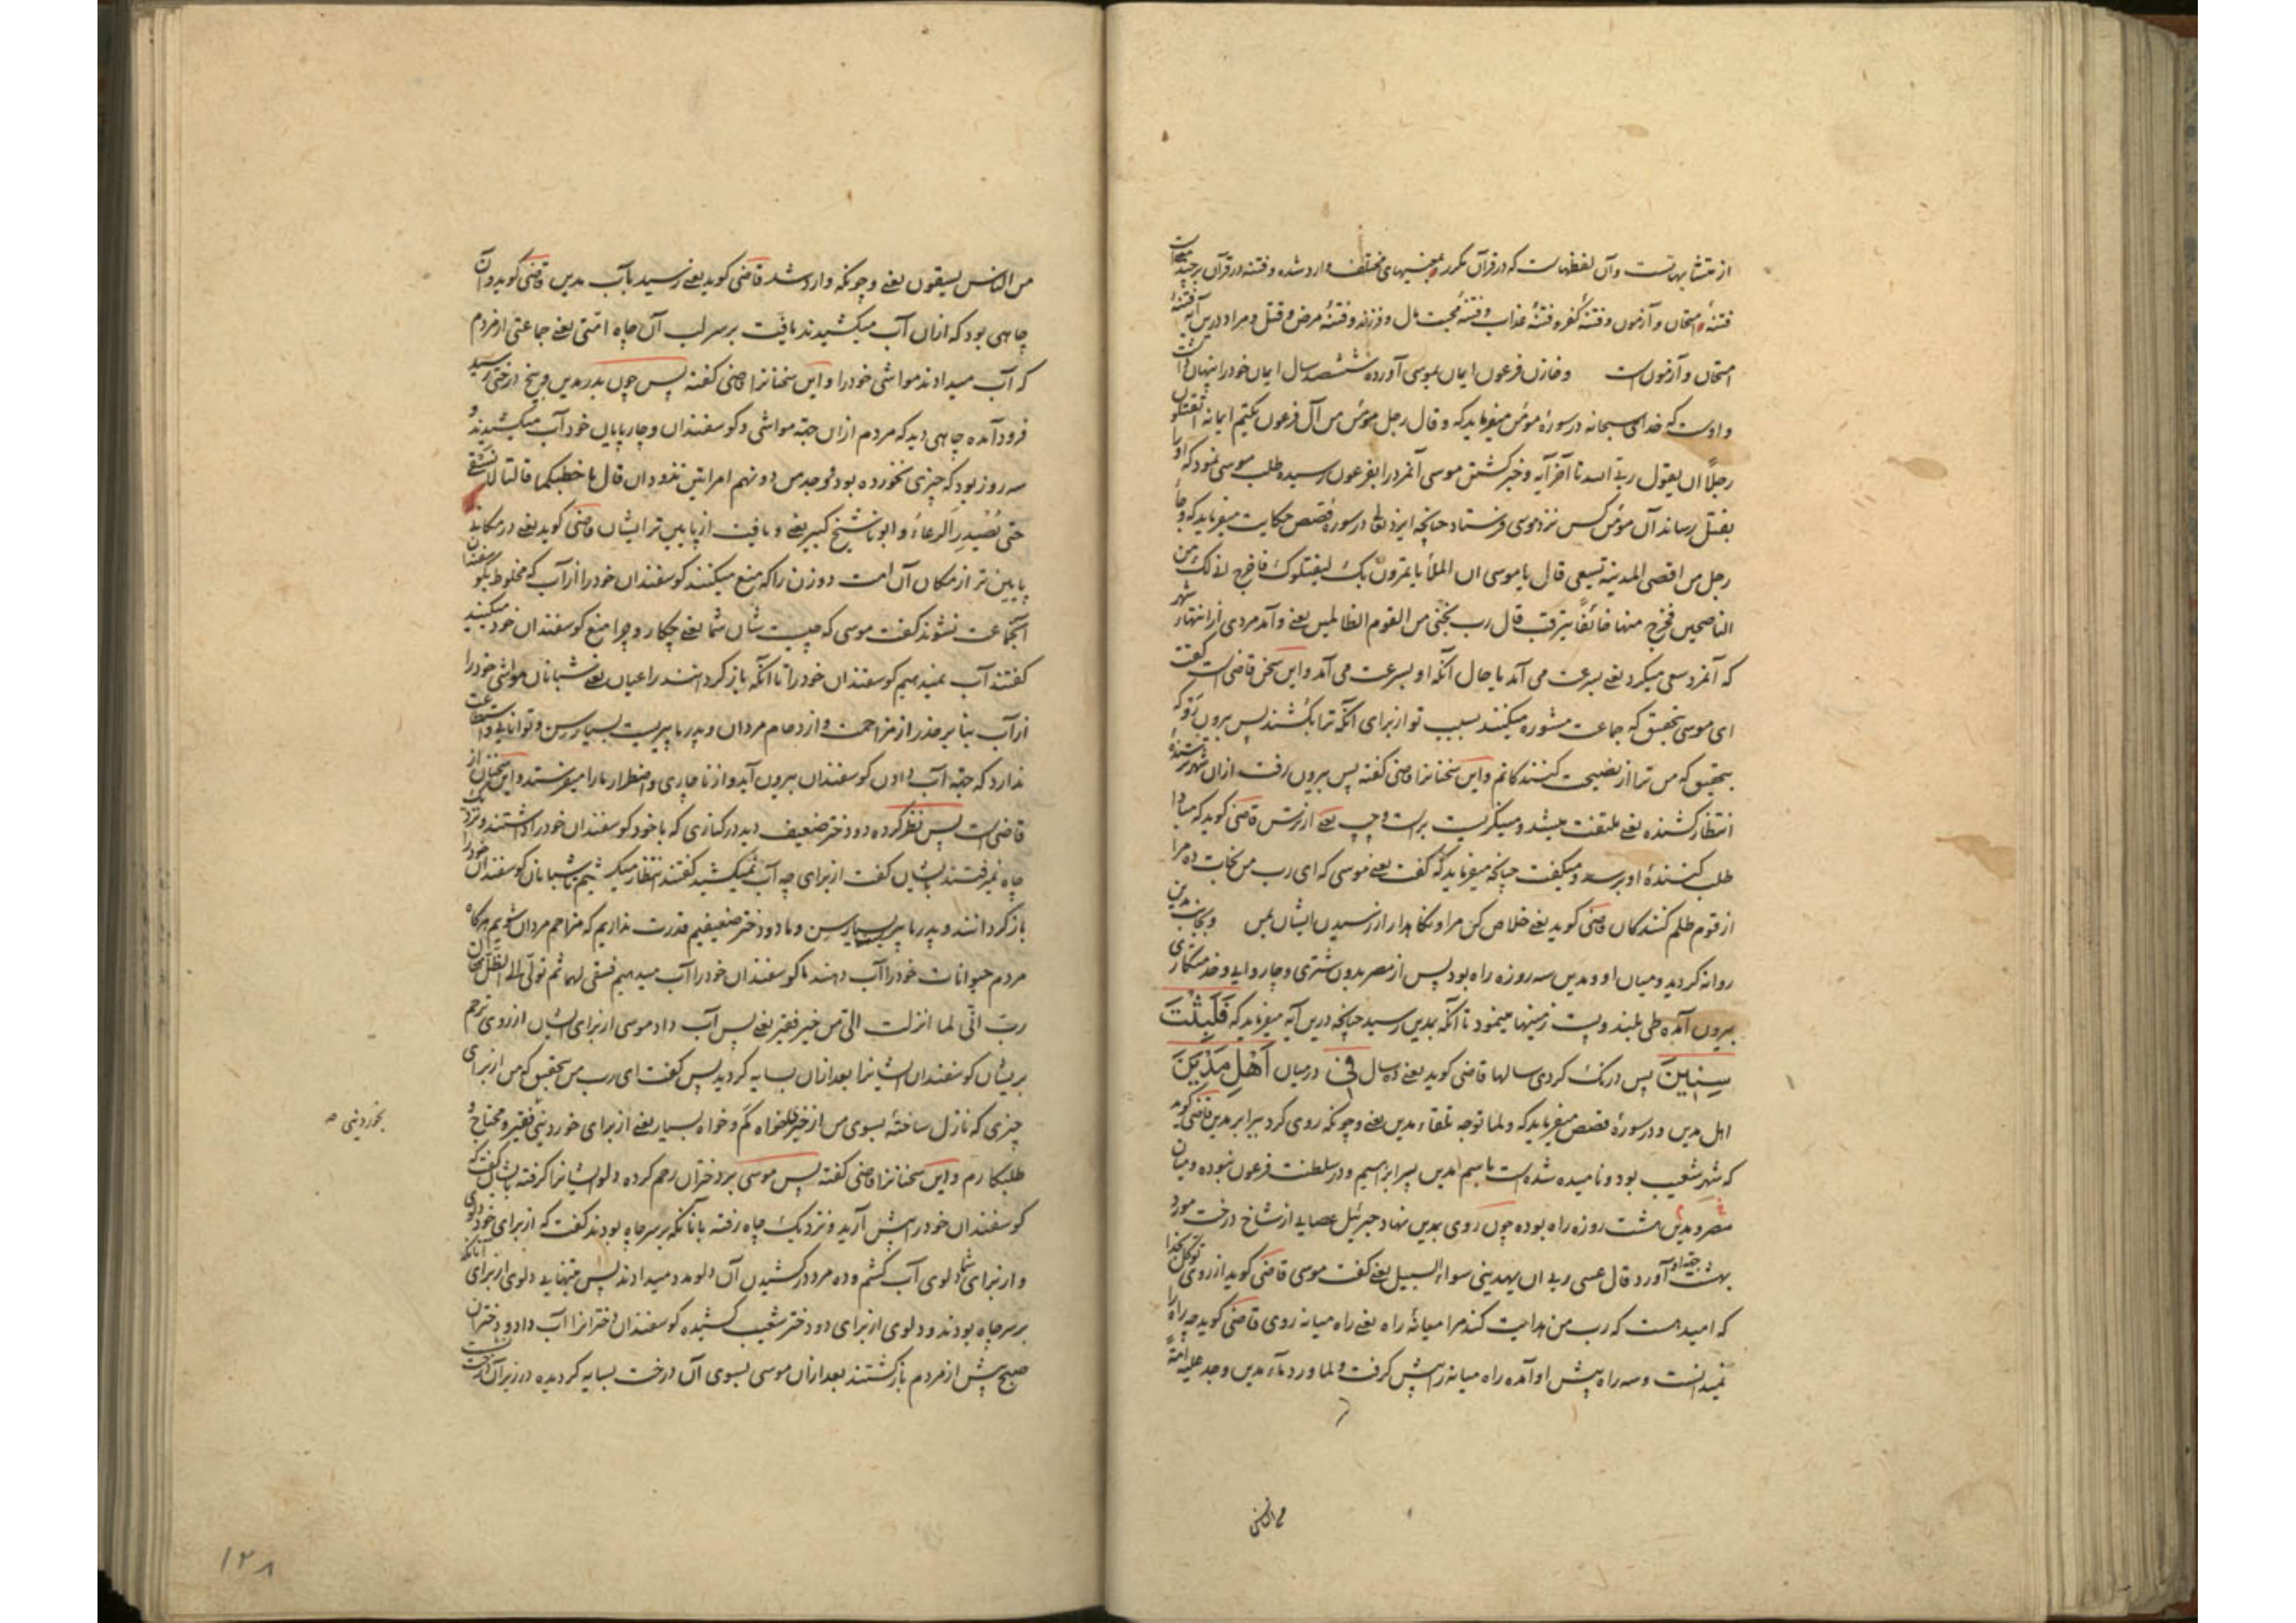 از متشابهاتست و آن لفظهاست که در قرآن مکرر و بمعنیهای مختلف وارد شده و فتنه در قرآن بر چند معنیست
فتنهٔ امتحان و آزمون و فتنهٔ کفر و فتنهٔ عذاب و فتنهٔ محبت مال و فرزند و فتنهٔ مرض و قتل و مراد درین آیه فتنهٔ
امتحان و آزمون است و خازن فرعون ایمان بموسی آورده ششصد سال ایمان خود را پنهان داشت
و اوست که خدای سبحانه در سورهٔ مؤمن میفرماید که و قال رجل مؤمن من آل فرعون یکتم ایمانه اتقتلون
رجلاً ان یقول ربی الله تا آخر آیه و خبر کشتن موسی آنمرد را بفرعون رسیده طلب موسی نمود که او را
بقتل رساند آن مؤمن کس نزد موسی فرستاد چنانچه ایزد تعالی در سورهٔ قصص حکایت میفرماید که و جأ
رجل من اقصی المدینة تسعی قال یا موسی ان الملأ یاتمرون بک لیقتلوک فاخرج انی لک من
الناصحین فخرج منها خائفاً یترقب قال رب نجنی من القوم الظالمین یعنی و آمد مردی از انتهاء شهر
که آنمرد سعی میکرد یعنی بسرعت می آمد یا حال آنکه او بسرعت می آمد و این سخن قاضی است گفت
ای موسی بتحقیق که جماعت مشوره میکنند بسبب تو از برای آنکه ترا بکشند پس بیرون رو که
بتحقیق که من ترا از نصیحت کنندگانم و این سخنانرا قاضی گفته پس بیرون رفت ازان شهر ترسنده
انتظار کشنده یعنی ملتفت میشد و مینگریست براست و چپ یعنی از ترس قاضی گوید که مبادا
طلب کنندهٔ او برسد و میگفت چنانچه میفرماید که گفت یعنی موسی که ای رب من نجات ده مرا
از قوم ظلم کنندگان قاضی گوید یعنی خلاص کن مرا و نگاهدار از رسیدن ایشان بمن و بجانب مدین
روانه گردید و میان او و مدین سه روزه راه بود پس از مصر بدون شتری و چاروایی و خدمتکاری
بیرون آمده طی بلند و پست زمینها مینمود تا آنکه بمدین رسید چنانچه درین آیه میفرماید که فَلَبِثْتَ
سِنِینَ پس درنگ کردی سالها قاضی گوید یعنی ده سال فِی در میان أَهْلِ مَدْیَنَ
اهل مدین و در سورهٔ قصص میفرماید که و لما توجه تلقاء مدین یعنی و چونکه روی کرد ببرابر مدین قاضی گوید
که شهر شعیب بود و نامیده شده است باسم مدین پسر ابراهیم و در سلطنت فرعون نبوده و میان
مصر و مدین هشت روزه راه بوده چون روی بمدین نهاد جبرئیل عصایی از شاخ درخت مورد
بهشت جهة او آورد قال عسی ربی ان یهدینی سواء السبیل یعنی گفت موسی قاضی گوید از روی توکل بخدا
که امید است که رب من هدایت کند مرا میانهٔ راه یعنی راه میانه روی قاضی گوید چه راه را
نمیدانست و سه راه پیش او آمده راه میانه را پیش گرفت و لما ورد مآء مدین وجد علیه امةً
من الناس
من الناس یسقون یعنی و چونکه وارد شد قاضی گوید یعنی رسید بآب مدین قاضی گوید و آن
چاهی بود که ازان آب میکشیدند یافت بر سر لب آن چاه امتی یعنی جماعتی از مردم
که آب میدادند مواشی خود را و این سخنانرا قاضی گفته پس چون بدر مدین در بیخ درختی رسید
فرود آمده چاهی دید که مردم ازان جهة مواشی و گوسفندان و چارپایان خود آب میکشیدند و
سه روز بود که چیزی نخورده بود فوجد من دونهم امراتین تذودان قال ما خطبکما قالتا لا نسقی
حتی یُصْدِرَ الرعاءُ و ابونا شیخ کبیر یعنی و یافت از پایین تر ایشان قاضی گوید یعنی در مکانی
پایین تر از مکان آن امت دو زن را که منع میکنند گوسفندان خود را از آب که مخلوط بگوسفندان
آنجماعت نشوند گفت موسی که چیست شان شما یعنی چکار و چرا منع گوسفندان خود میکنید
گفتند آب نمیدهیم گوسفندان خود را تا آنکه باز گردانند راعیان یعنی شبانان مواشی خود را
از آب بنابر حذر از مزاحمت و ازدحام مردان و پدر ما پیریست بسیار سن و توانایی و استطاعت
ندارد که جهة آب دادن گوسفندان بیرون آید و از ناچاری و اضطرار ما را میفرستد و این سخنان از
قاضی است پس نظر کرده دو دختر ضعیف دید در کناری که با خود گوسفندان خود را داشتند و نزدیک
چاه نمیرفتند بایشان گفت از برای چه آب نمیکشید گفتند انتظار میکشیم تا شبانان گوسفندان خود را
باز گردانند و پدر ما پیر بسیار سن و ما دو دختر ضعیفیم قدرت نداریم که مزاحم مردان شویم هرگاه
مردم حیوانات خود را آب دهند ما گوسفندان خود را آب میدهیم فسقی لهما ثم تولی الی الظل فقال
رب انی لما انزلت الی من خیر فقیر یعنی پس آب داد موسی از برای ایشان از روی ترحم
بریشان گوسفندان ایشانرا بعد ازان بسایه گردید پس گفت ای رب من بتحقیق که من از برای
چیزی که نازل ساختهٔ بسوی من از خیر خواه کم و خواه بسیار یعنی از برای خوردینی فقیر و محتاج و
بخوردینی
طلبکارم و این سخنانرا قاضی گفته پس موسی بر دختران رحم کرده دلو ایشانرا گرفته بایشان گفت که
گوسفندان خود را پیش آرید و نزدیک چاه رفته بانانکه بر سر چاه بودند گفت که از برای خود دلوی
و از برای شما دلوی آب کشم و ده مرد در کشیدن آن دلو مدد میدادند پس بتنهایی دلوی از برای آنانکه
بر سر چاه بودند و دلوی از برای دو دختر شعیب کشیده گوسفندان دخترانرا آب داد و دختران
صبح پیش از مردم بازگشتند بعد ازان موسی بسوی آن درخت بسایه گردیده در زیر آن درخت
۱۲۸